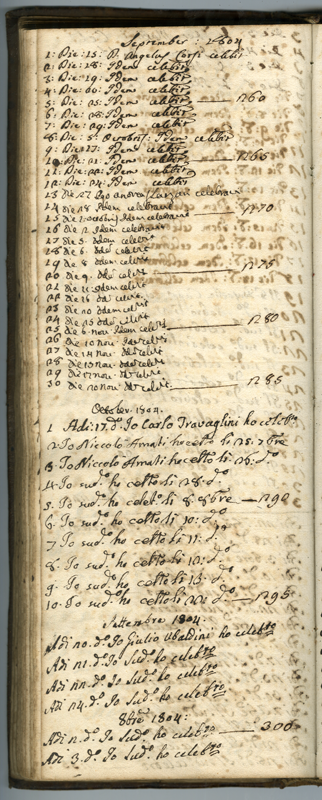 September: 1804
1: Die: 15: D. Angelus Corsi celebit
2: Die: 18: Idem celebit
3: Die: 19: Idem celebit
4: Die: 20: Idem celebit
5: Die: 25: Idem celebit — 1260
6: Die: 28: Idem celebit
7: Die: 29: Idem celebit
8: Die: 5: Octobris: Idem celebit
9: Die: 17: Idem celebit
10: Die: 21: Idem celebit — 1265
11: Die: 22: Idem celebit
12: Die: 24: Idem celebit
13 die 27 Ego Andrea celebravi
14 die 28 Idem celebravi — 1270
15 die 1 octobris Idem celebravi
16 die 2 Idem celebravi
17 die 5 ddem celebvi
18 die 6 dde celebvi
19 die 8 ddem celebvi — 1275
20 die 9 dde celebvi
21 die 11 ddem celebvi
22 die 16 dde celebvi
23 die 20 ddem celebvi
24 die 25 dde celebvi — 1280
25 die 6 nov Idem celebvi
26 die 10 nov Ide celebvi
27 die 14 nov dde celebvi
28 die 15 nov dde celebvi
29 die 17 nov dde celebvi
30 die 20 nov dde celebvi — 1285
October 1804.
1 Adi: 17. dº Io Carlo Travaglini ho celebto
2 Io Niccolo Amati ho celto li 25: 7bre
3 Io Niccolo Amati ho celto li 26: dº
4 Io sudº ho celto li 28: dº
5. Io sudº ho celto li 8: 8bre — 1290
6 Io sudº ho celto li 10: dº
7 Io sudº ho celto li 11: dº
8. Io sudº ho celto li 12: dº
9. Io sudº ho celto li 13: dº
10: Io sudº ho celto li 22: dº — 1295
Settembre 1804
Adi 20. dº Io Giulio Ubaldini ho celebto
Adi 21. dº Io Sudº ho celebto
Adi 22. dº Io Sudº ho celebto
Adi 24. dº Io Sudº ho celebto
8bre 1804:
Adi 2. dº Io Sudº ho celebto — 300
Adi 3. dº Io Sudº ho celebto